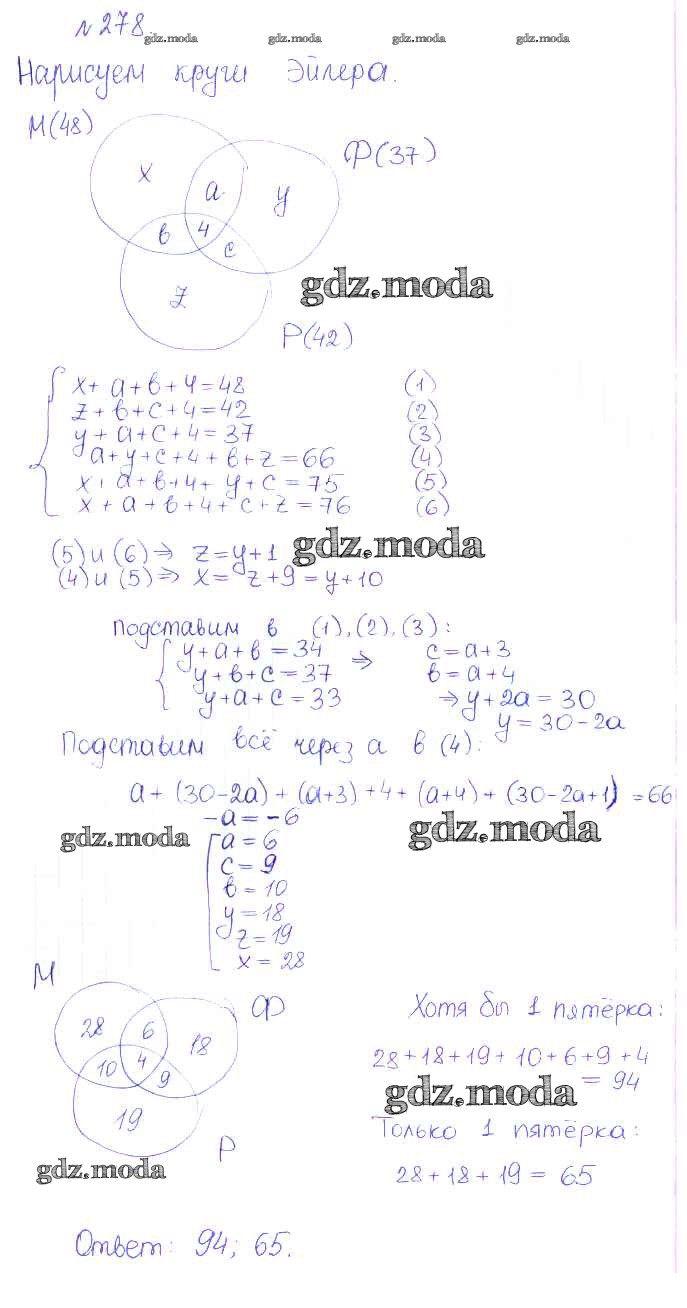 №278
gdz.moda gdz.moda gdz.moda gdz.moda
Нарисуем круги Эйлера.
М(48)
Ф(37)
x a y
в 4 c
gdz.moda
z
Р(42)
x + a + в + 4 = 48 (1)
z + в + c + 4 = 42 (2)
y + a + c + 4 = 37 (3)
a + y + c + 4 + в + z = 66 (4)
x + a + в + 4 + y + c = 75 (5)
x + a + в + 4 + c + z = 76 (6)
(5) и (6) ⇒ z = y + 1 gdz.moda
(4) и (5) ⇒ x = z + 9 = y + 10
подставим в (1), (2), (3):
y + a + в = 34 ⇒ c = a + 3
y + в + c = 37 в = a + 4
y + a + c = 33 ⇒ y + 2a = 30
y = 30 - 2a
Подставим всё через a в (4):
a + (30 - 2a) + (a + 3) + 4 + (a + 4) + (30 - 2a + 1) = 66
-a = -6
gdz.moda gdz.moda
a = 6
c = 9
в = 10
y = 18
z = 19
x = 28
М
Ф
28 6 18
10 4 9
19
Р
gdz.moda
Хотя бы 1 пятёрка:
28 + 18 + 19 + 10 + 6 + 9 + 4
= 94
gdz.moda
Только 1 пятёрка:
28 + 18 + 19 = 65
Ответ: 94; 65.